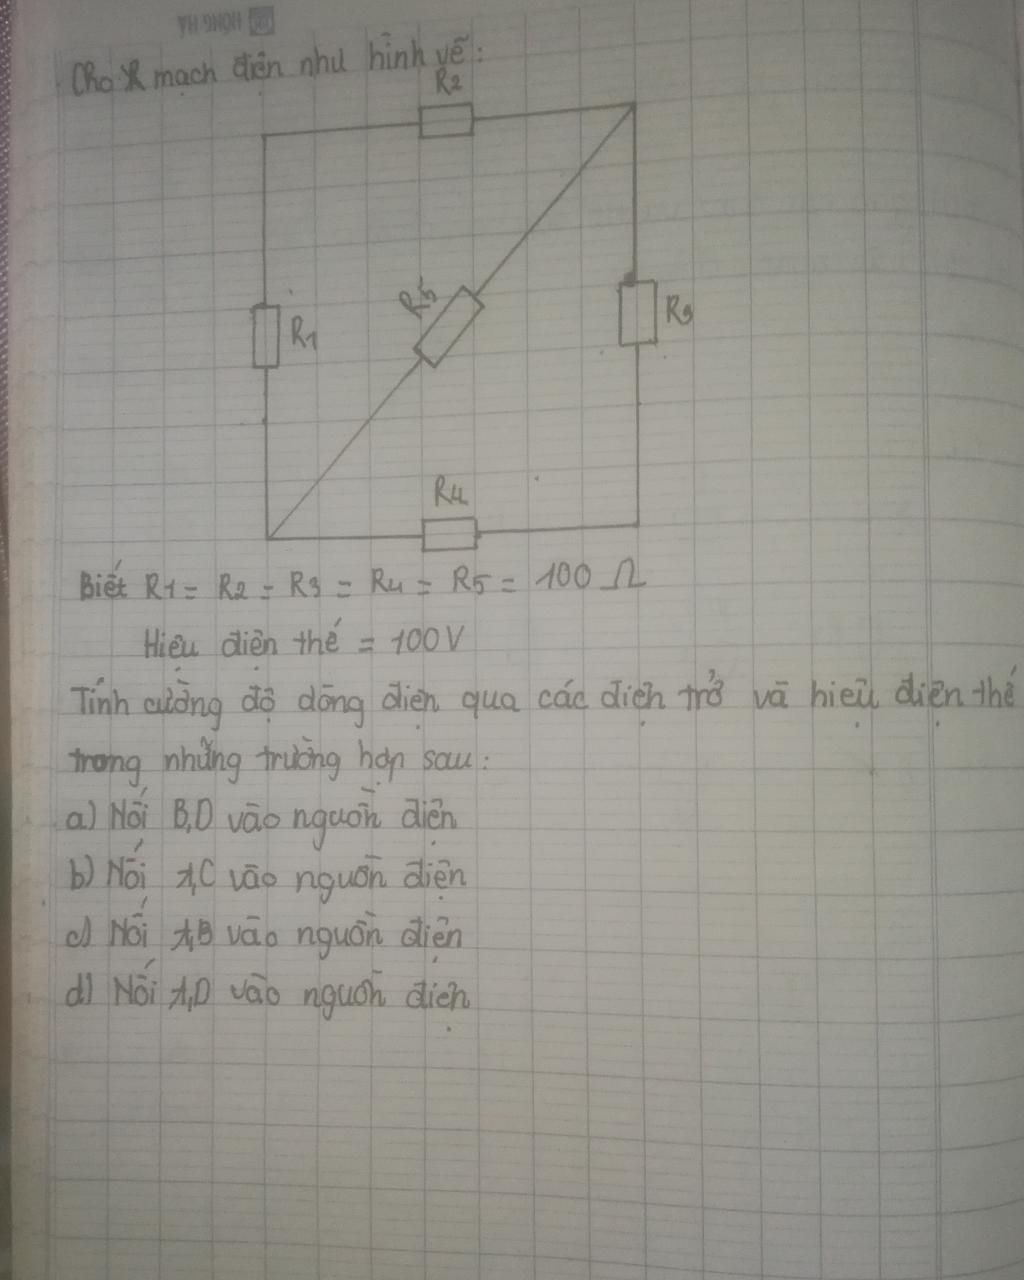 HONG HA
Cho mạch điện như hình vẽ:
R2
R5
R1
R3
R4
Biết R1 = R2 = R3 = R4 = R5 = 100 Ω
Hiệu điện thế = 100V
Tính cường độ dòng điện qua các điện trở và hiệu điện thế
trong những trường hợp sau:
a) Nối B,D vào nguồn điện
b) Nối A,C vào nguồn điện
c) Nối A,B vào nguồn điện
d) Nối A,D vào nguồn điện